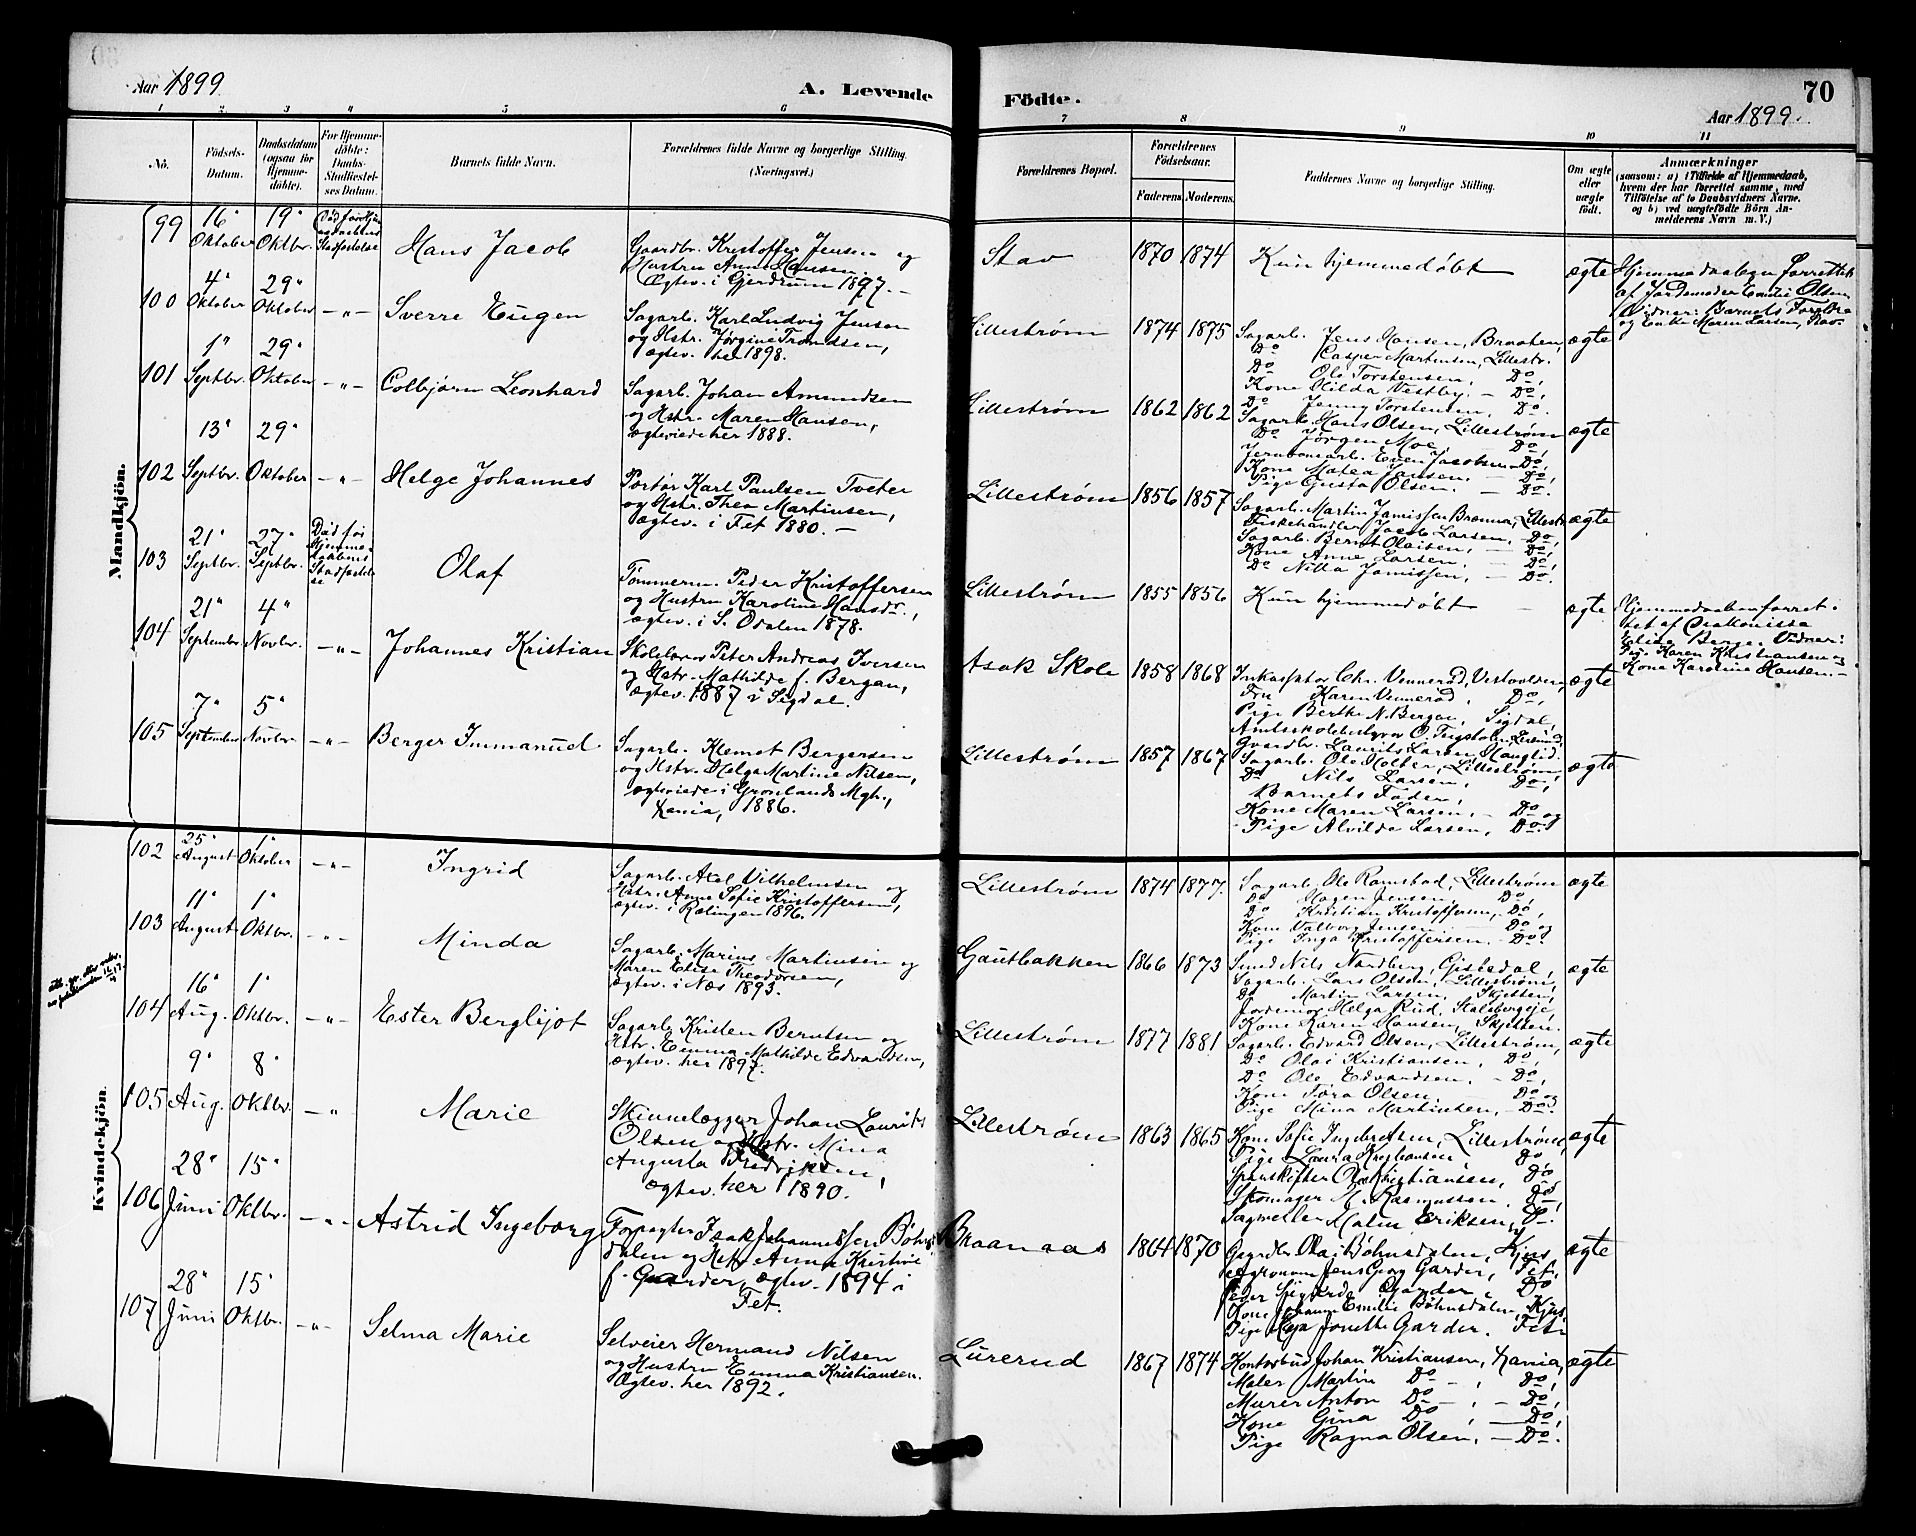 Aar 1899 A. Levende
Födte. 70
Aar 1899.
1 2 3 4 5 6
7 8 9 10 11
No.
Födsels-Datum.
Daabsdatum (ogsaa for Hjemmedöbte).
For Hjemmedöbte: Daabs-Stadfæstelses Datum.
Barnets fulde Navn.
Forældrenes fulde Navne og borgerlige Stilling. (Næringsvei.)
Forældrenes Bopæl.
Forældrenes Födselsaar.
Faderens Moderens.
Faddernes Navne og borgerlige Stilling.
Om ægte eller uægte födt.
Anmærkninger
(saasom: a) i Tilfælde af Hjemmedaab, hvem der har forrettet samme, med Tilföielse af to Daabsvidners Navne. og b) ved uægtefödte Börn Anmelderens Navn m. V.)
Mandkjön.
99 16' Oktober 19' Oktbr. Död før Hjemmedaabens Stadfæstelse Hans Jacob
Gaardbr. Kristoffer Jensen og
Hustru Anne Hansen.
Ægtev. i Gjerdrum 1897. –
Stav 1870 1874 Kun hjemmedøbt ægte
Hjemmedaaben forrettet
af Jordemoder Emilie Olsen
Vidner: Barnets Forældre
og Enke Maren Larsen, Stav.
100 4' Oktober 29' Oktober –"– Sverre Eugen
Sagarb. Karl Ludvig Jensen
og Hstr. Jørgine Trondsen,
ægtev. her 1898.
Lillestrøm 1874 1875
Sagarb. Jens Hansen, Braaten,
Do Casper Martinsen, Lillestr.
Do Ole Torstensen, Do,
Kone Olilda Vestby, – Do,
Do Jenny Torstensen, Do.
ægte
101 1' Septbr. 29' Oktober –"– Colbjørn Leonhard
Sagarb. Johan Amundsen
og Hstr. Maren Hansen,
ægteviede her 1888.
Lillestrøm 1862 1862
Sagarb. Hans Olsen, Lillestrøm
Do Jørgen Moe, Do,
Jernbanearb. Even Jacobsen – Do,
Kone Matea Jansen. – Do,
Pige Gusta Olsen. – Do.
ægte
102 13' Septbr. 29' Oktober –"– Helge Johannes
Portør Karl Paulsen Tveter
og Hstr. Thea Martinsen,
ægtev. i Fet 1880. –
Lillestrøm 1856 1857
Sagarb. Martin Jamissen Brenna, Lillestr.
Fiskehandler Jacob Larsen, Do,
Sagarb. Bernt Olaisen, – Do,
Kone Anne Larsen. – Do,
Do Nilla Jamissen, – Do.
ægte
103 21' Septbr. 27' Septbr. Död før Hjemmedaabens Stadfæstelse Olaf
Tömmerm. Peder Kristoffersen
og Hustru Karoline Hansdr.,
ægtev. i S. Odalen 1878.
Lillestrøm 1855 1856 Kun hjemmedøbt – ægte
Hjemmedaaben forret-
tet af Diakonisse
Eline Berge. Vidner:
Pige Karen Kristiansen og
Kone Karoline Hansen. –
104 21" September 4" Novbr. –"– Johannes Kristian
Skolelærer Peter Andreas Iversen
og Hstr. Mathilde f. Bergan,
ægtev. 1887 i Sigdal.
Asak Skole 1858 1868
Inkassator Chr. Vennerød, Vestvolden,
Fru Karen Vennerød, Do,
Pige Berthe N. Bergan, Sigdal,
Gaardbr. Laurits Larsen, Haugtid.
ægte
105 7" September 5" Novbr. –"– Berger Immanuel
Sagarb. Klemet Bergersen
og Hstr. Helga Martine Nilsen,
ægteviede i Grønlands Mgh.,
Xania, 1886.
Lillestrøm 1857 1867
Sagarb. Ole Holter, Lillestrøm,
Do Nils Larsen, Do,
Barnets Fader,
Kone Maren Larsen, – Do og
Pige Alvilde Larsen, Do.
ægte
Kvindekjön.
102 25' August 1' Oktober –"– Ingrid
Sagarb. Axel Vilhelmsen og
Hstr. Anne Sofie Kristoffersen,
ægtev. i Rælingen 1896.
Lillestrøm 1874 1877.
Sagarb. Ole Ramstad, Lillestrøm
Do Magen Jensen, Do,
Do Kristian Kristoffersen, – Do,
Kone Valborg Jensen – Do og
Pige Inga Kristoffersen. – Do.
ægte
103 11' August 1' Oktbr. –"– Minda
Sagarb. Marius Martinsen og
Maren Elise Theodorsen,
ægtev. i Næs 1893.
Gautbakken 1866 1873
Smed Nils Nordberg, Gjstedal,
Sagarb. Lars Olsen, Lillestrøm,
Do Martin Larsen, Skjetten,
Jordemor Helga Rud, Stalsbergeje,
Kone Karen Hansen, Skjetten.
ægte
104 16' Aug. 1' Oktbr. –"– Ester Bergliot
Sagarb. Kristen Berntsen og
Hstr. Emma Mathilde Edvardsen,
ægtev. her 1897.
Lillestrøm 1877 1881
Sagarb. Edvard Olsen, Lillestrøm,
Do Olai Kristiansen, Do,
Do Ole Edvardsen, – Do,
Kone Tora Olsen. – Do og
Pige Mina Martinsen, – Do.
ægte
105 9' Aug. 8' Oktbr. –"– Marie
Skinnelægger Johan Laurits
Olsen og Hstr. Mina
Augusta Fredriksen,
ægtev. her 1890.
Lillestrøm 1863 1865
Kone Sofie Ingebretsen, Lillestrøm,
Pige Laura Kristiansen Do
Sporskifter O. Kristiansen, Do
Skomager M. Rasmussen Do,
Sagmester Malm Eriksen, Do.
ægte
106 28' Juni 15' Oktbr. –"– Astrid Ingeborg
Forpagter Isak Johannessen Bøhns-
dalen og Hstr. Anna Kristine
f. Garder, ægtev. 1894 i
Fet.
Braanaas 1864 1870
Gaardbr. Olai Bøhnsdalen, Kjus
Agronom Jens Georg Garder, Fet,
Peder Sigvard Garder, Do
Kone Johanne Emilie Bøhnsdalen, Kjus,
Pige Maja Jonette Garder. Fet.
ægte
107 28' Juni 15' Oktbr. –"– Selma Marie
Selveier Hermand Nilsen
og Hustru Emma Kristiansen.
Ægtev. her 1892.
Lurerud 1867 1874
Kontorbud Johan Kristiansen, Xania,
Maler Martin Do – , Do,
Murer Anton Do – , – Do,
Kone Gina Do , – Do,
Pige Ragna Olsen, – Do.
ægte